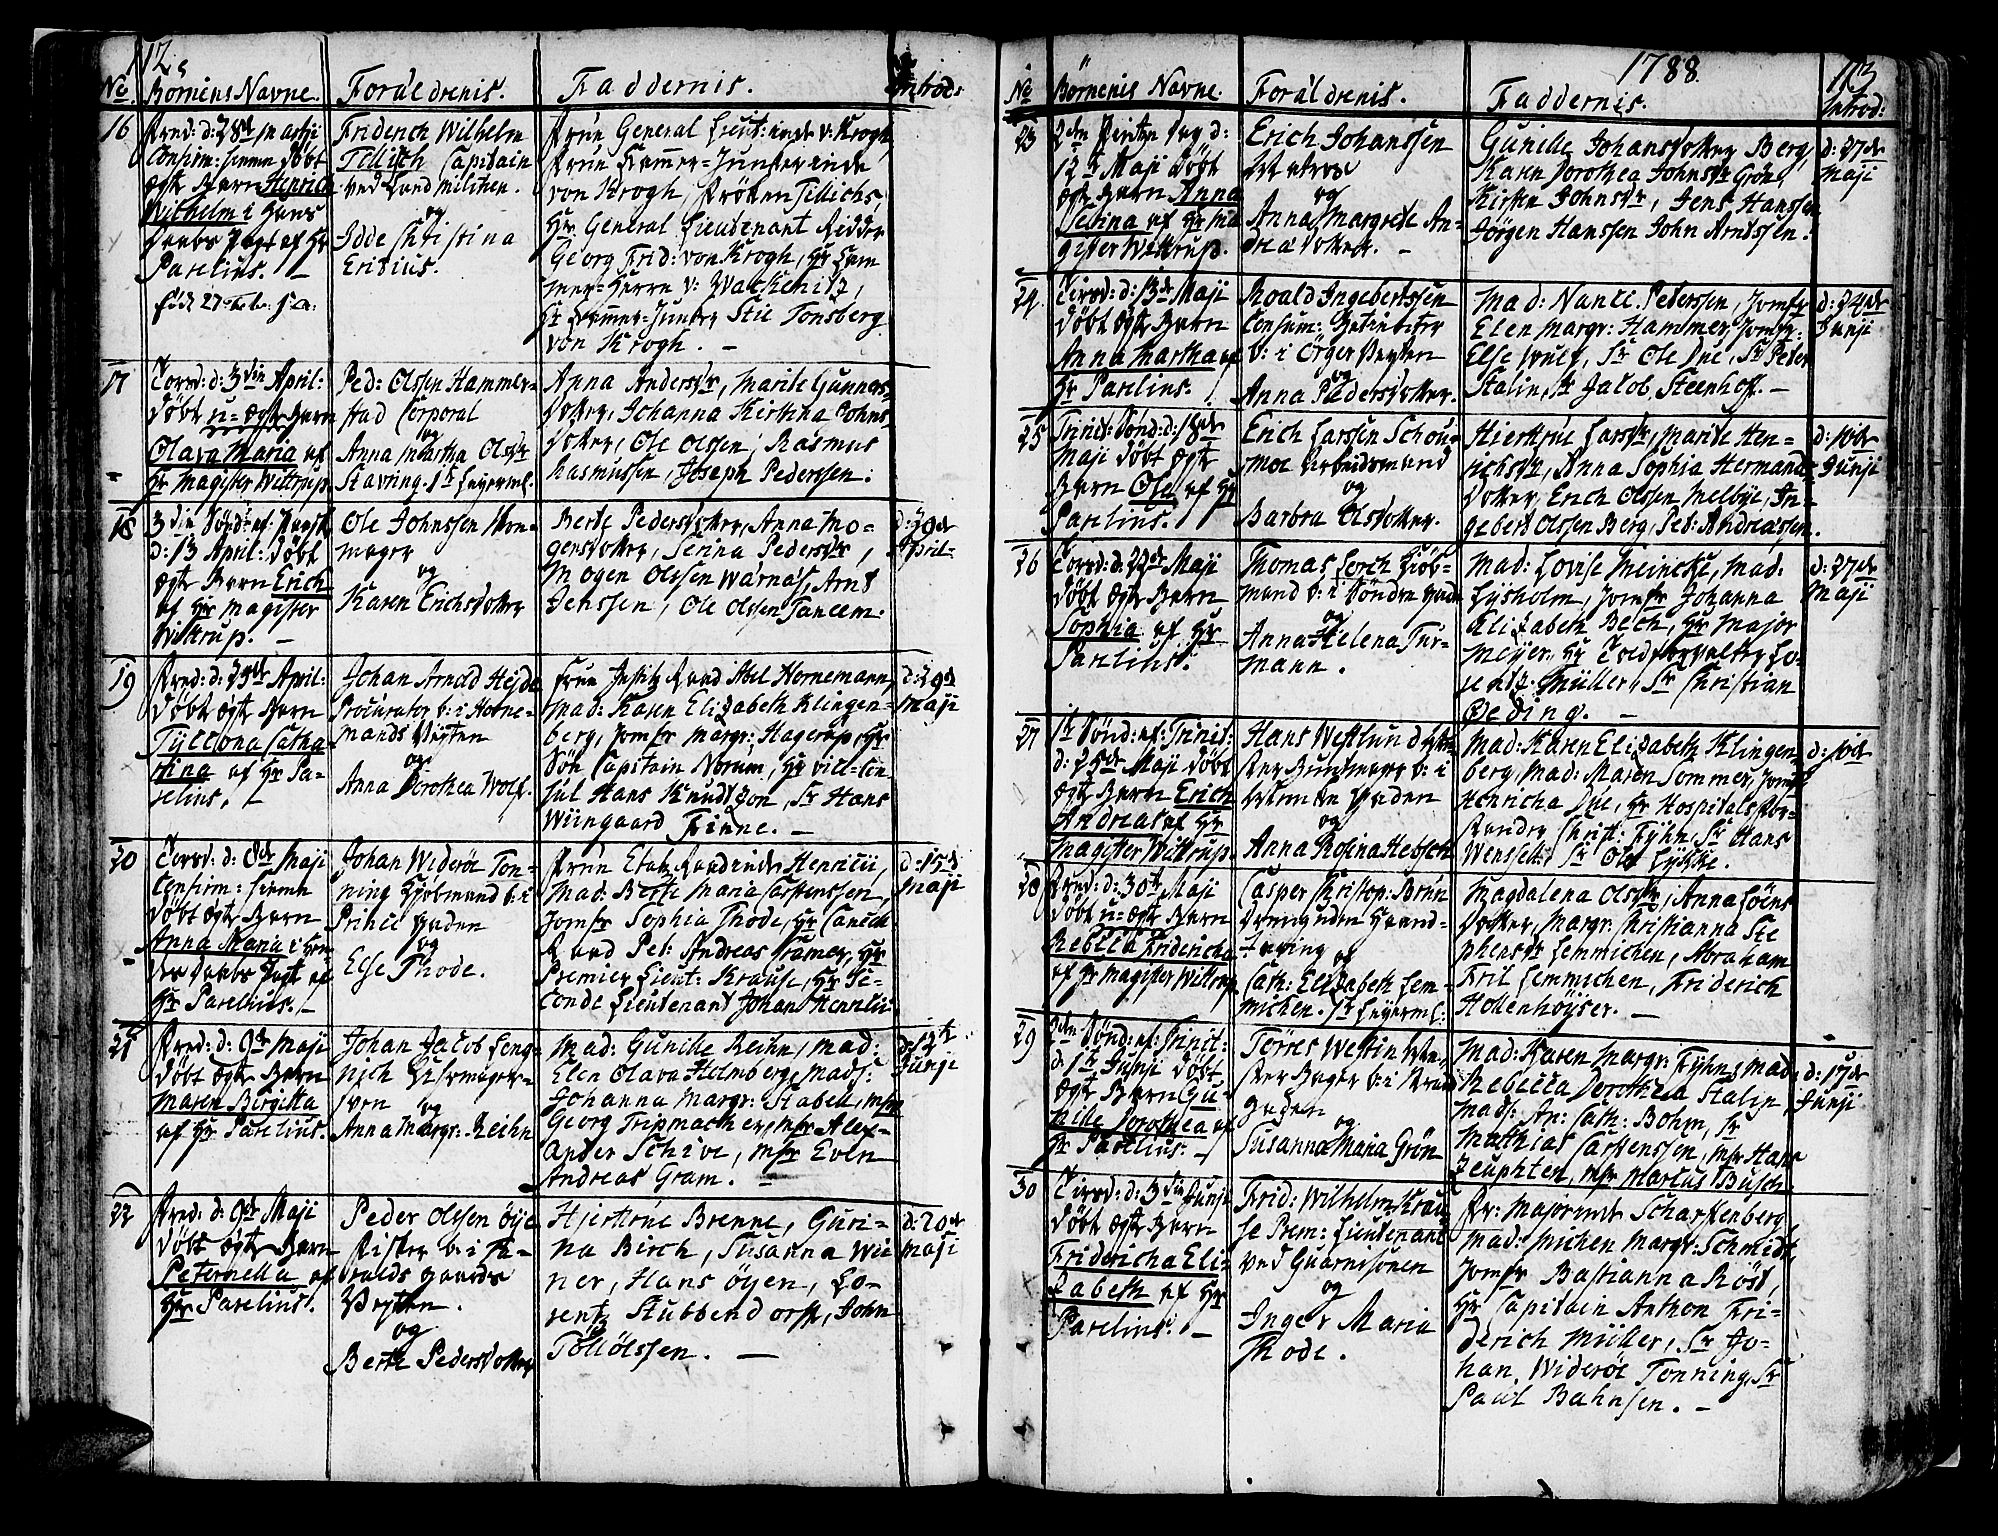 112.
No
Børnens Navne.
Forældrenis.
Faddernis.
Introd:
16
Fred: d: 28de Martji
Confirm: hiemme døbt
ægte Barn Henrich
Wilhelm i Huus
Daabs Pagt af Hr
Parelius. –
Friderich Wilhelm
Tillisch Capitain
ved Land militien.
og
Idde Christina
Erisius.
Frue General Lieut:inde v: Krogh
Frue Kammer=Junkerinde
von Krogh, Frøken Tillichs,
Hr General Lieutenant Ridder
Georg Frid: von Krogh, Hr Kam
mer=Herre v: Wackenitz,
Hr Kammer=Junker Stie Tonsberg
von Krogh. –
17
Torsd: d: 3die April:
døbt u=ægte Barn
Olava Maria af
Hr Magister Wittrup.
Ped: Olssen Hammer=
stad Corporal
og
Anna Martha Olsdr
Stavring. 1st Leyerml.
Anna Andersdr, Marite Gunners
dotter, Johanna Kirstina Johns
dotter, Ole Olssen, Rasmus
Rasmussen, Joseph Pederssen.
18
3die Sønd: ef: Paask
d: 13 April: døbt
ægte Barn Erich
af Hr Magister
Wittrup. –
Ole Johnssen
mager
og
Karen Erichsdotter
Berte Pedersdotter, Anna Mo=
gensdotter, Serina Pedersdr,
Mogen Olssen Warnæs, Arnt
Jenssen, Ole Olssen Tanem.
d: 30de
April
19
Fred: d: 25de April:
døbt ægte Barn
Tyllona Catha
rina af Hr Pa=
relius. –
Johan Arnold Hejde
Procurator b: i Horne=
mands Veyten
og
Anna Dorothea Wolf.
Frue Justitz Raad Abel Hornemann,
Mad: Karen Elizabeth Klingen=
berg, Jomfr Margr: Hagerup, Hr
Søe Capitain Norum, Hr vice-Con
sul Hans Knudtzon, Sr Hans
Wiingaard Finne. –
d: 29de
Maji
20
Torsd: d: 8de Maji
Confirm: hiemme
døbt ægte Barn
Anna Maria i
Daabs Pagt af
Hr Parelius. –
Johan Widerøe Ton=
ning Kjøbmand b: i
Prince Gaden
og
Else Thode.
Frue Etatz Raadinde Henrici,
Mad: Berte Maria Carstenssen,
Jomfr Sophia Thode, Hr Cancelli
Raad Ped: Andreas Gamer, Hr
Premier Lieut: Krause, Hr Se=
conde Lieutenant Johan Henrici.
d: 15de
Maji
21
Fred: d: 9de Maji
døbt ægte Barn
Maren Birgitta
af Hr Parelius.
Johan Jacob Leng=
nich
sven og
Anna Margr: Reihn
Mad: Gunilde Reihn, Mad:
Elen Olava Holmberg, Mads:
Johanna Margr: Stabell, Msr
Georg Tripmacher, Msr Alex=
ander Schive, Msr Even
Andreas Gram. –
d: 12te
Junji
22
Fred: d: 9de Maji
døbt ægte Barn
Peternella af
Hr Parelius.
Peder Olssen Øye
Fisker b: i Ha=
ralds gaards
Veyten.
og
Berte Pedersdotter
Hjertrue Brenne, Guri=
na Birch, Susanna Wii
ner, Hans Øyen, Lo=
rentz Stubbendorff, John
Tolløfssen. –
d: 20de
Maji
1788
113
No
Børnenis Navne.
Forældrenis.
Faddernis.
Introd:
23
2den Pintze Dag d:
12te Maji døbt
ægte Barn Anna
Serina af Hr Ma
gister Wittrup.
Erich Johanssen
Matros
og
Anna Margrete An=
dreædotter. –
Gunilde Johansdotter Berg
Karen Dorothea Johnsdr Grøn,
Kirstie Johnsdr, Jens Hanssen
Jørgen Hanssen John Arntssen.
d: 27de
Maji
24
Tirsd: d: 13de Maji
døbt ægte Barn
Anna Martha af
Hr Parelius.
Roald Ingebertssen
Consum: Betienter
b: i Ørger Veyten
og
Anna Pedersdotter.
Mad: Nanci Pederssen, Jomfr
Elen Margr: Hammer, Jomfr:
Else Wulf, Sr Ole Lie, Sr Peder
Stalin, Sr Jacob Steenhoff. –
d: 24de
Junji
25
Trinit: Sønd: d: 18de
Maji døbt ægte
Barn Ole af Hr
Parelius.
Erich Larssen Schou=
moe Arbeidsmand
og
Barbra Olsdotter.
Hiertrue Larsdr, Marite Hen=
richsdr, Anna Sophia Hermans
dotter, Erich Olssen Melbye, In=
gebert Olssen Berg, Ped: Andreassen.
d: 10de
Junji
26
Torsd: d: 22de Maji
døbt ægte Barn
Sophia af Hr
Parelius.
Thomas Lorch Kiøb=
mand b: i Søndre Gade
og
Anna Helena Tur=
mann.
Mad: Lovise Meincke, Mad:
Lysholm, Jomfr Johanna
Elizabeth Bech, Hr Major
Meyer, Hr Toldforvalter Lo=
rentz Müller, Sr Christian
Øeding. –
d: 27de
Maji
27
1te Sønd: ef: Trinit:
d: 25de Maji døbt
ægte Barn Erich
Andreas af Hr
Magister Wittrup.
Hans Westlund
b: i
Gaden
og
Anna Rosina Hebsch
Mad: Karen Elizabeth Klingen
berg, Mad: Maren Sommer, Jomfr
Henricha Lie, Hr Hospitals For=
stander Christ: Fyhn, Sr Hans
Wenssel, Sr Ole Lykke.
d: 10de
28
Fred: d: 30te Maji
døbt u=ægte Barn
Rebecca Fridericha
af Hr Magister Wittrup
Casper Christop: Brun
og
Cath: Elizabeth Lem=
michen. 1st Leyerml:
Magdalena Olsdr, Anna Loens
dotter, Margr: Christianna Ste
phensdr Lemmichen, Abraham
Fril Lemmichen, Friderich
Hollenhøyser. –
29
2den Sønd: ef: Trinit:
d: 1te Junji døbt
ægte Barn Gu=
nilde Dorothea af
Hr Parelius. –
Torres Westin
ster Bager b: i Strand
gaden
og
Susanna Maria Grøn
Mad: Karen Margr: Fyhn, Mad:
Rebecca Dorothea Stalin,
Mads: An: Cath: Bohm, Sr
Mathias Carstenssen, Msr Hans
Zeuphten, Msr Marcus Busch.
d: 17de
Junji
30
Tirsd: d: 3die Junji
døbt ægte Barn
Fridericha Eli=
zabeth af Hr
Parelius. –
Frid: Wilhelm Krau
se Prem: Lieutenant
ved Guarnisonen
og
Inger Maria
Thode.
Fr: Majorinde Scharffenberg
Mad: Michen Margr: Schmidt,
Jomfr Bastianna Røst,
Hr Capitain Anthon Fri=
derich Müller, Sr Jo=
han Widerøe Tonning, Sr
Paul Bahnsen. –